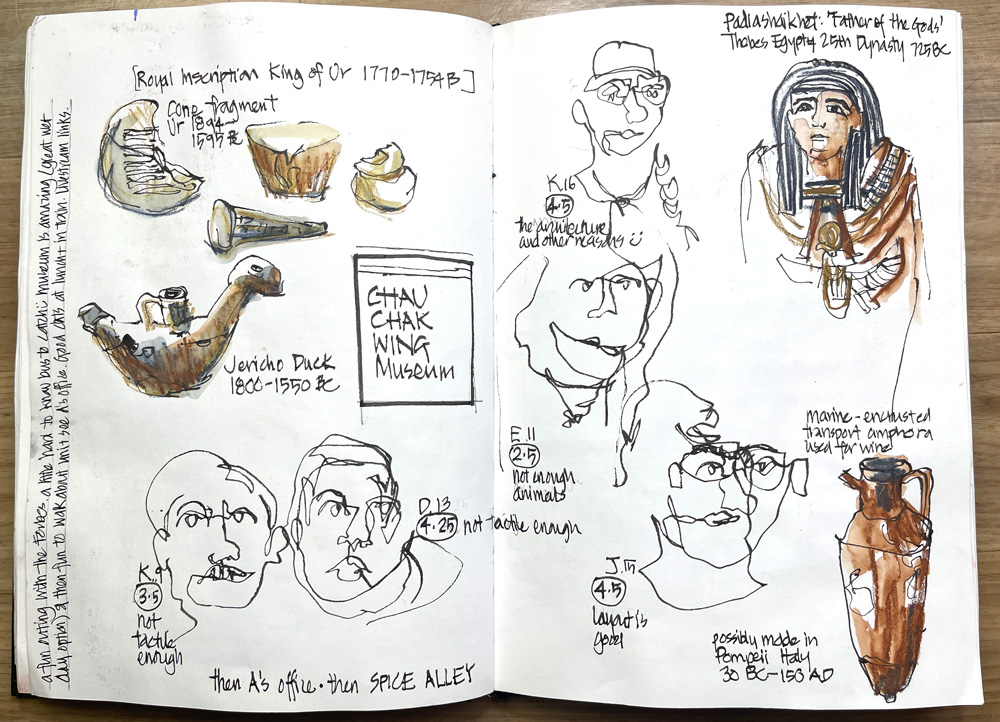 a fun outing with the Forbes. a little hard to know bus to catch :) Museum is amazing (great wet
day option) & then fun to walkabout Uni + see A's office. Good eats at lunch + in train. Livestream links.
[Royal Inscription King of Ur 1770-1754 B ]
Cone fragment
Ur 1894-
1595 BC
Jericho Duck
1800-1550 BC
CHAU
CHAK
WING
Museum
K.9
3.5
not
tactile
enough
D.13
4.25 not tactile enough
then A's office · then SPICE ALLEY
K.16
4.5
the architecture
and other reasons :)
E.11
2.5
not enough
animals
J.15
4.5
layout is
good
Padiashaikhet: 'Father of the Gods'
Thebes Egypty 25th Dynasty 725BC
marine-encrusted
transport amphora
used for wine
possibly made in
Pompeii Italy
30 BC-153 AD